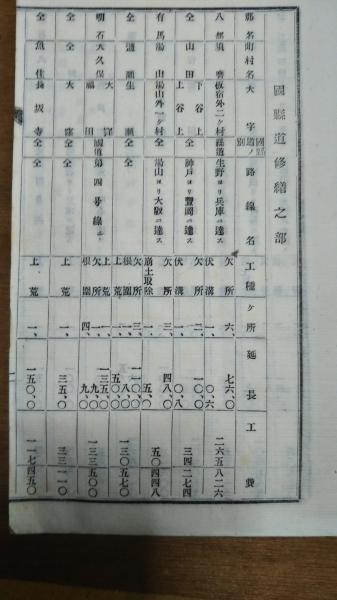 國縣道修繕之部
郡名 町村名 大字 國縣道ノ別 路線名 工種 ケ所 延長 工費
八部 須磨 板宿外二ケ村 縣道 生野ヨリ兵庫ニ達ス 欠所 六、 七六、〇 二六五八二六
伏溝 一、 〇、六
仝 山田 下谷上 仝 欠所 二、 一〇〇、
上谷上 神戸ヨリ豐岡ニ達ス 伏溝 一、 〇、八 三四二七四
有馬 湯山 湯山外一ケ村 仝 湯山ヨリ大阪ニ達ス 欠所 三、 四八、〇 五〇四四八
崩土取除 一、 五、〇
仝 鹽瀬 生瀬 仝 仝 欠所 三、 一一、〇
根圍 一、 八、〇 一三〇五七〇
上荒 一、 五〇、〇
明石 大久保 大窪 國道 第四號線 上荒 一、 一三五、〇
福田 欠所 一、 九、〇 一三三五〇〇
根圍 四、 九、〇
仝 仝 大窪 仝 仝 上荒 一、 三五、〇 三三一一〇
仝 魚住 長坂寺 仝 仝 上荒 一、 一五〇、〇 一一七四五〇